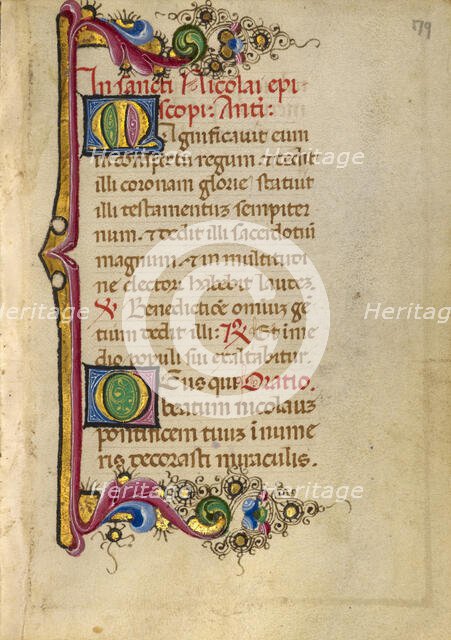 79
In sancti Nicolai epi
scopi: Anti:
Magnificavit eum
in conspectu regum. & dedit
illi coronam glorie statuit
illi testamentum sempiter
num. & dedit illi sacerdotiū
magnum. & in multitudi
ne electorū habebit laudez.
℣ Benedictiōe omniuz gē
tium dedit illi: ℟ Et in me
dio populi sui exaltabitur.
Deus qui Oratio.
beatum nicolauz
pontificem tuuz īnume
ris decorasti miraculis.
Heritage
Heritage
Heritage
Heritage
Heritage
Heritage
C